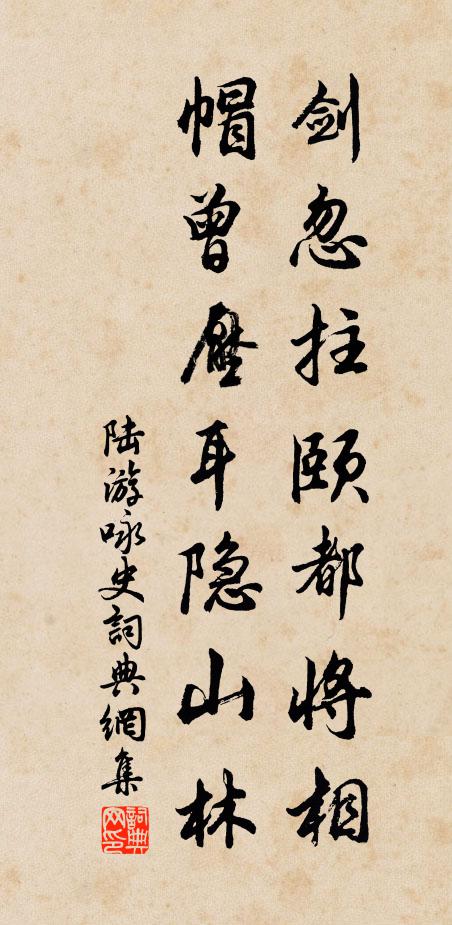 剑忽拄颐都将相
帽曾壓耳隐山林
陆游咏史詞典網集
詞典网印